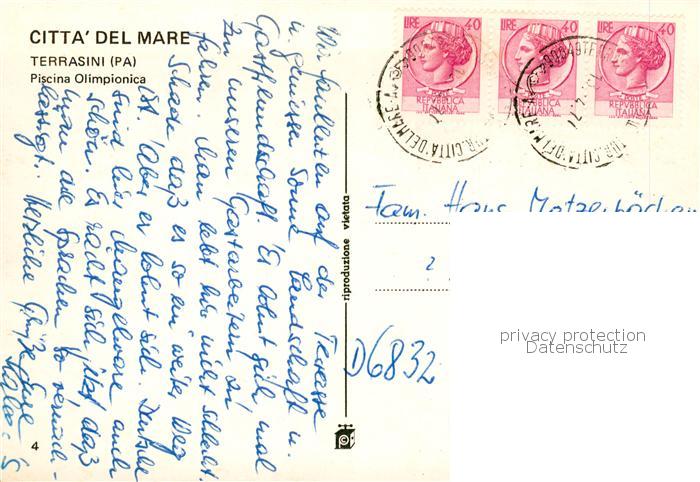 CITTA' DEL MARE
TERRASINI (PA)
Piscina Olimpionica
Wir faulenzen auf der Terrasse
u. genießen Sonne Landschaft u.
Gastfreundschaft. Es lohnt sich mal
zu unseren Gastarbeitern zu
fahren. Man lebt hier nicht schlecht.
Schade daß es so ein weiter Weg
ist. Aber es lohnt sich. Deutsche
sind hier Mangelware auch
schön. Es rächt sich jetzt daß
man die Sprachen so vernach-
lässigt. Herzliche Grüße Eure
4
riproduzione vietata
LIRE 40
REPVBBLICA
ITALIANA
LIRE 40
REPVBBLICA
ITALIANA
LIRE 40
REPVBBLICA
ITALIANA
CITTA' DEL MARE
Fam. Hans
D6832
privacy protection
Datenschutz